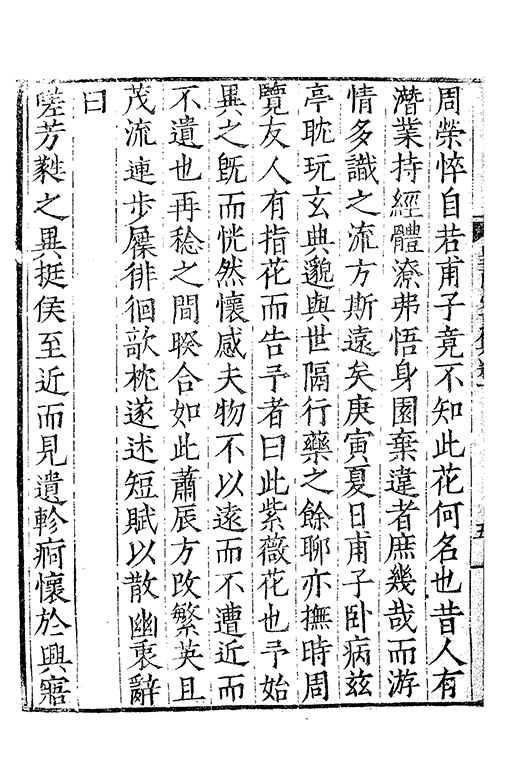 周榮悴自若甫子竟不知此花何名也昔人有
潛業持經體潦弗悟身園棄違者庶幾哉而游
情多識之流方斯遠矣庚寅夏日甫子卧病兹
亭耽玩玄典邈與世隔行藥之餘聊亦撫時周
覽友人有指花而告予者曰此紫薇花也予始
異之旣而恍然懷感夫物不以遠而不遭近而
不遺也再稔之間暌合如此蕭辰方改繁英且
茂流連步屧徘徊欹枕遂述短賦以散幽衷辭
曰
嗟芳蕤之異挺侯至近而見遺軫痾懷於興寤